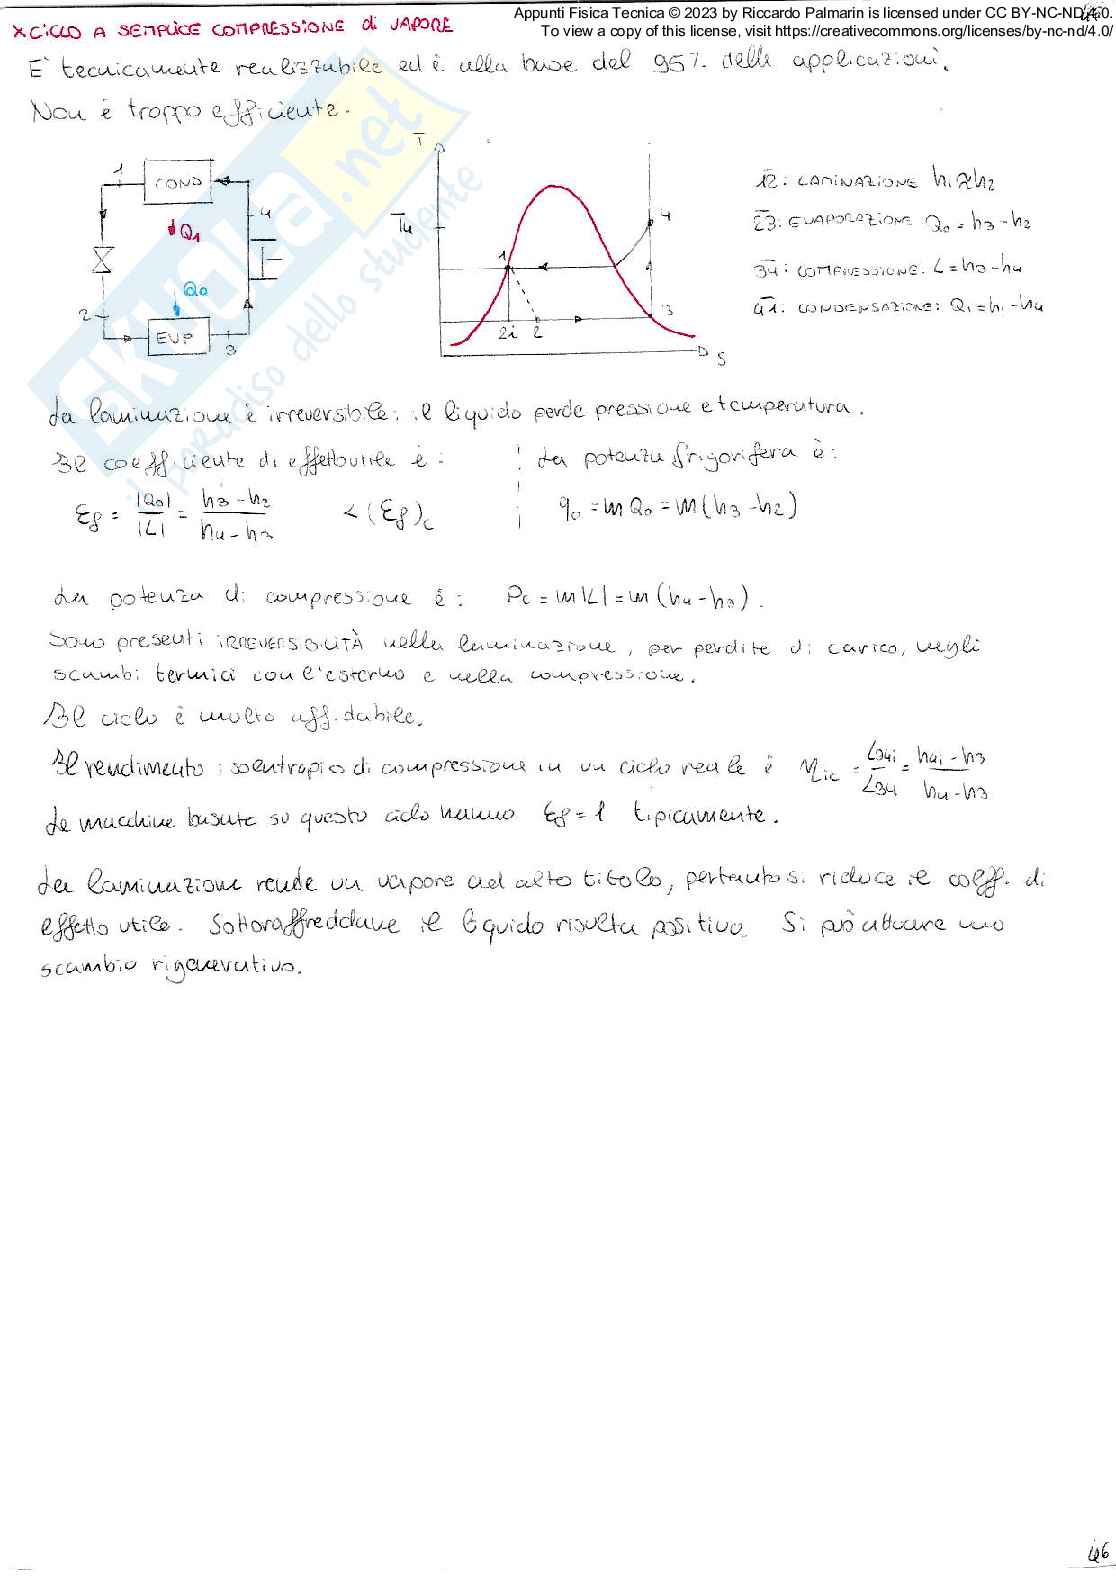 Appunti Fisica Tecnica © 2023 by Riccardo Palmarin is licensed under CC BY-NC-ND 4.0.
To view a copy of this license, visit https://creativecommons.org/licenses/by-nc-nd/4.0/
× CICLO A SEMPLICE COMPRESSIONE di VAPORE
E' tecnicamente realizzabile ed è alla base del 95% delle applicazioni.
Non è troppo efficiente.
1
COND
4
Q1
Q0
2
EVP
3
T
TH
1
4
2i
2
3
S
12: LAMINAZIONE h1≈h2
23: EVAPORAZIONE Q0 = h3-h2
34: COMPRESSIONE. L = h3-h4
41: CONDENSAZIONE: Q1 = h1-h4
La laminazione è irreversibile: il liquido perde pressione e temperatura.
Il coefficiente di effetto utile è:
εf = |Q0|/|L| = (h3-h2)/(h4-h3) < (εf)c
La potenza frigorifera è:
q0 = m Q0 = m(h3-h2)
La potenza di compressione è: Pc = m|L| = m(h4-h3).
Sono presenti IRREVERSIBILITÀ nella laminazione, per perdite di carico, negli
scambi termici con l'esterno e nella compressione.
Il ciclo è molto affidabile.
Il rendimento isoentropico di compressione in un ciclo reale è ηic = L34i/L34 = (h4i-h3)/(h4-h3)
Le macchine basate su questo ciclo hanno εf = 1 tipicamente.
La laminazione rende un vapore ad alto titolo, pertanto si riduce il coeff. di
effetto utile. Sottoraffreddare il liquido risulta positivo. Si può attuare uno
scambio rigenerativo.
46
skuola.net
il paradiso dello studente